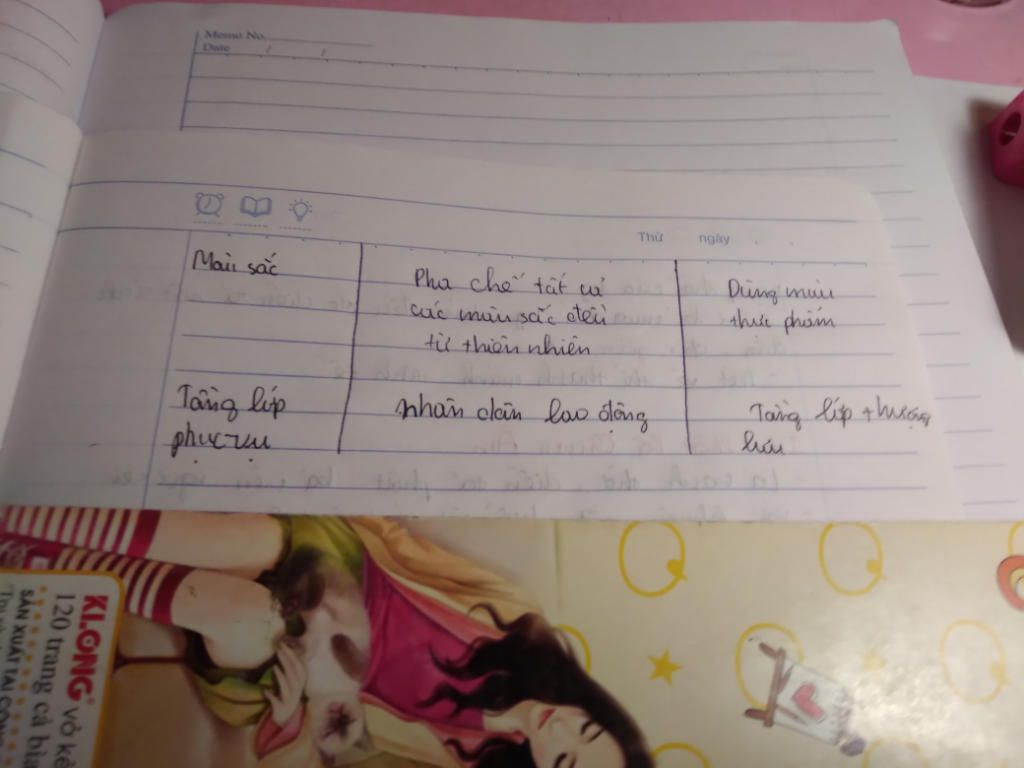 Memo No.
Date / /
Thứ ngày
Màu sắc
Pha chế tất cả
các màu sắc đều
từ thiên nhiên
Dùng màu
thực phẩm
Tầng lớp
phục vụ
nhân dân lao động
Tầng lớp thượng
lưu
KLONG
120 trang vở kẻ
cả bìa
SẢN XUẤT TẠI